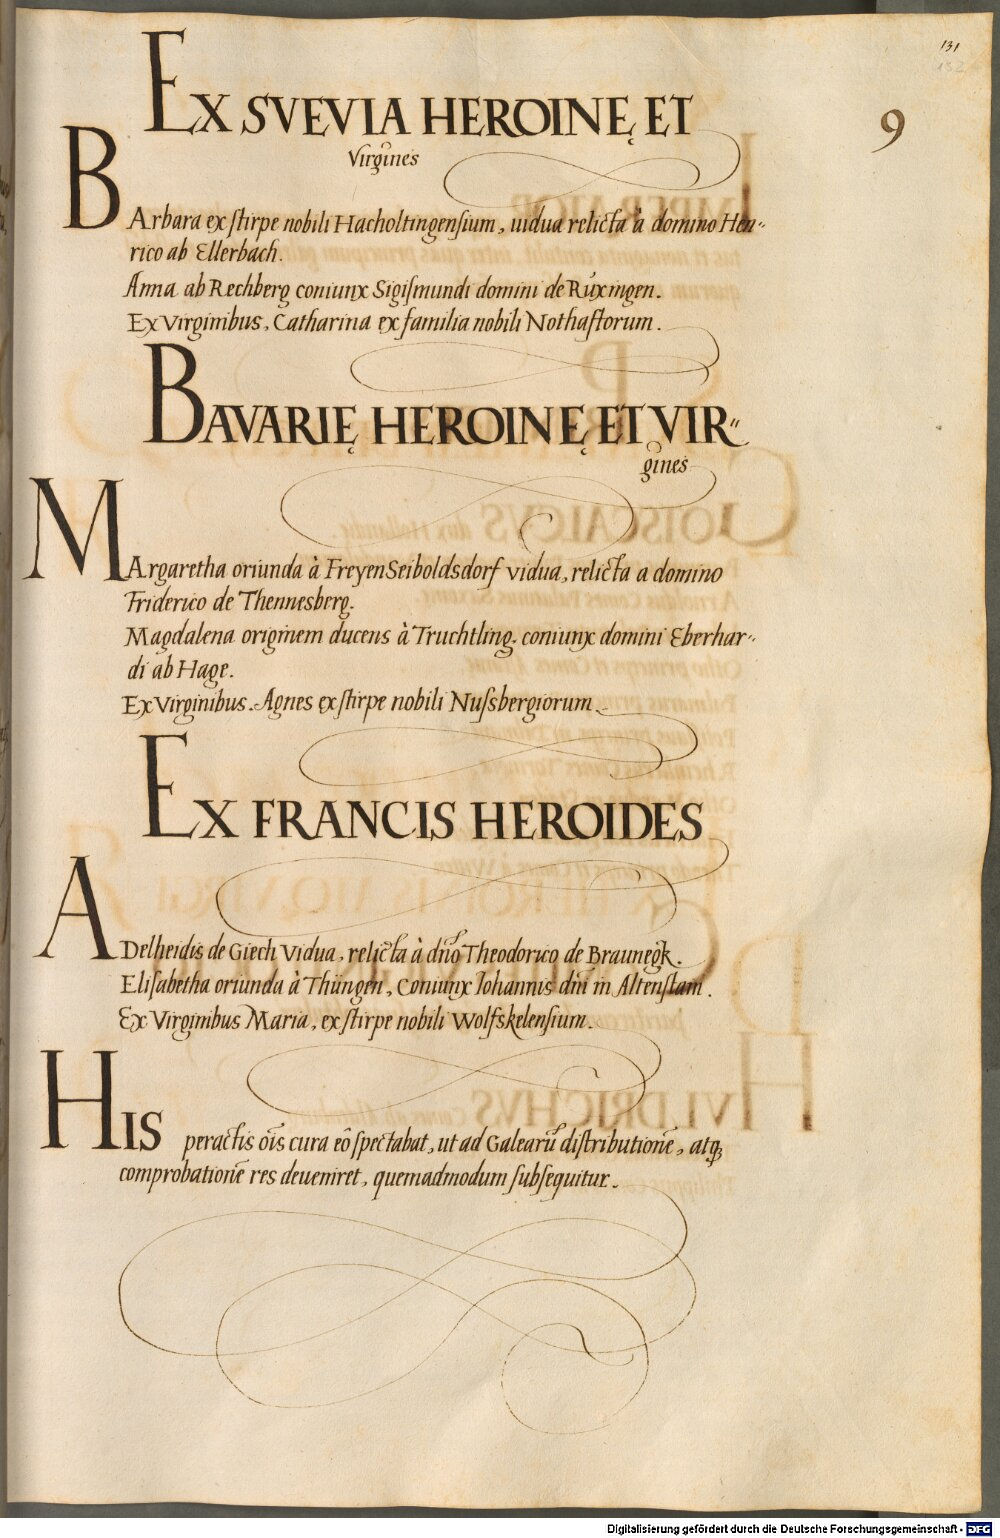 131
132
9
EX SVEVIA HEROINĘ ET
Virgines
BArbara ex stirpe nobili Hacholtingensium, uidua relicta à domino Hen-
rico ab Ellerbach.
Anna ab Rechberg coniunx Sigismundi domini de Rúxingen.
Ex Virginibus, Catharina ex familia nobili Nothaftorum.
BAVARIĘ HEROINĘ ET VIR-
gines
MArgaretha oriunda à FreyenSeiboldsdorf vidua, relicta a domino
Friderico de Thennesberg.
Magdalena originem ducens à Truchtling, coniunx domini Eberhar-
di ab Hage.
Ex Virginibus. Agnes ex stirpe nobili Nussbergiorum.
EX FRANCIS HEROIDES
ADelheidis de Giech Vidua, relicta à dño Theodorico de Braunegk.
Elisabetha oriunda à Thüngen, Coniunx Iohannis dñi in Altenstain.
Ex Virginibus Maria, ex stirpe nobili Wolfskelensium.
HIS peractis õis cura eô spectabat, ut ad Galearũ distributionẽ, atq;
comprobationẽ res deueniret, quemadmodum subsequitur.
Digitalisierung gefördert durch die Deutsche Forschungsgemeinschaft - DFG